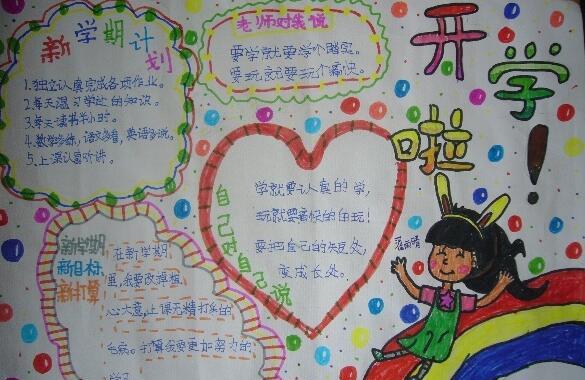 新学期计划
1.独立认真完成各项作业。
2.每天温习学过的知识。
3.每天读书半小时。
4.数学多练,语文多看,英语多说。
5.上课认真听讲。
老师对我说
要学就要学个踏实。
要玩就要玩个痛快。
开学啦!
自己对自己说
学就要认真的学,
玩就要痛快的玩!
要把自己的短处,
变成长处。
新学期
新目标
新打算
在新学期
里,我要改掉粗
心大意,上课无精打采的
毛病。打算我要更加努力的
学习